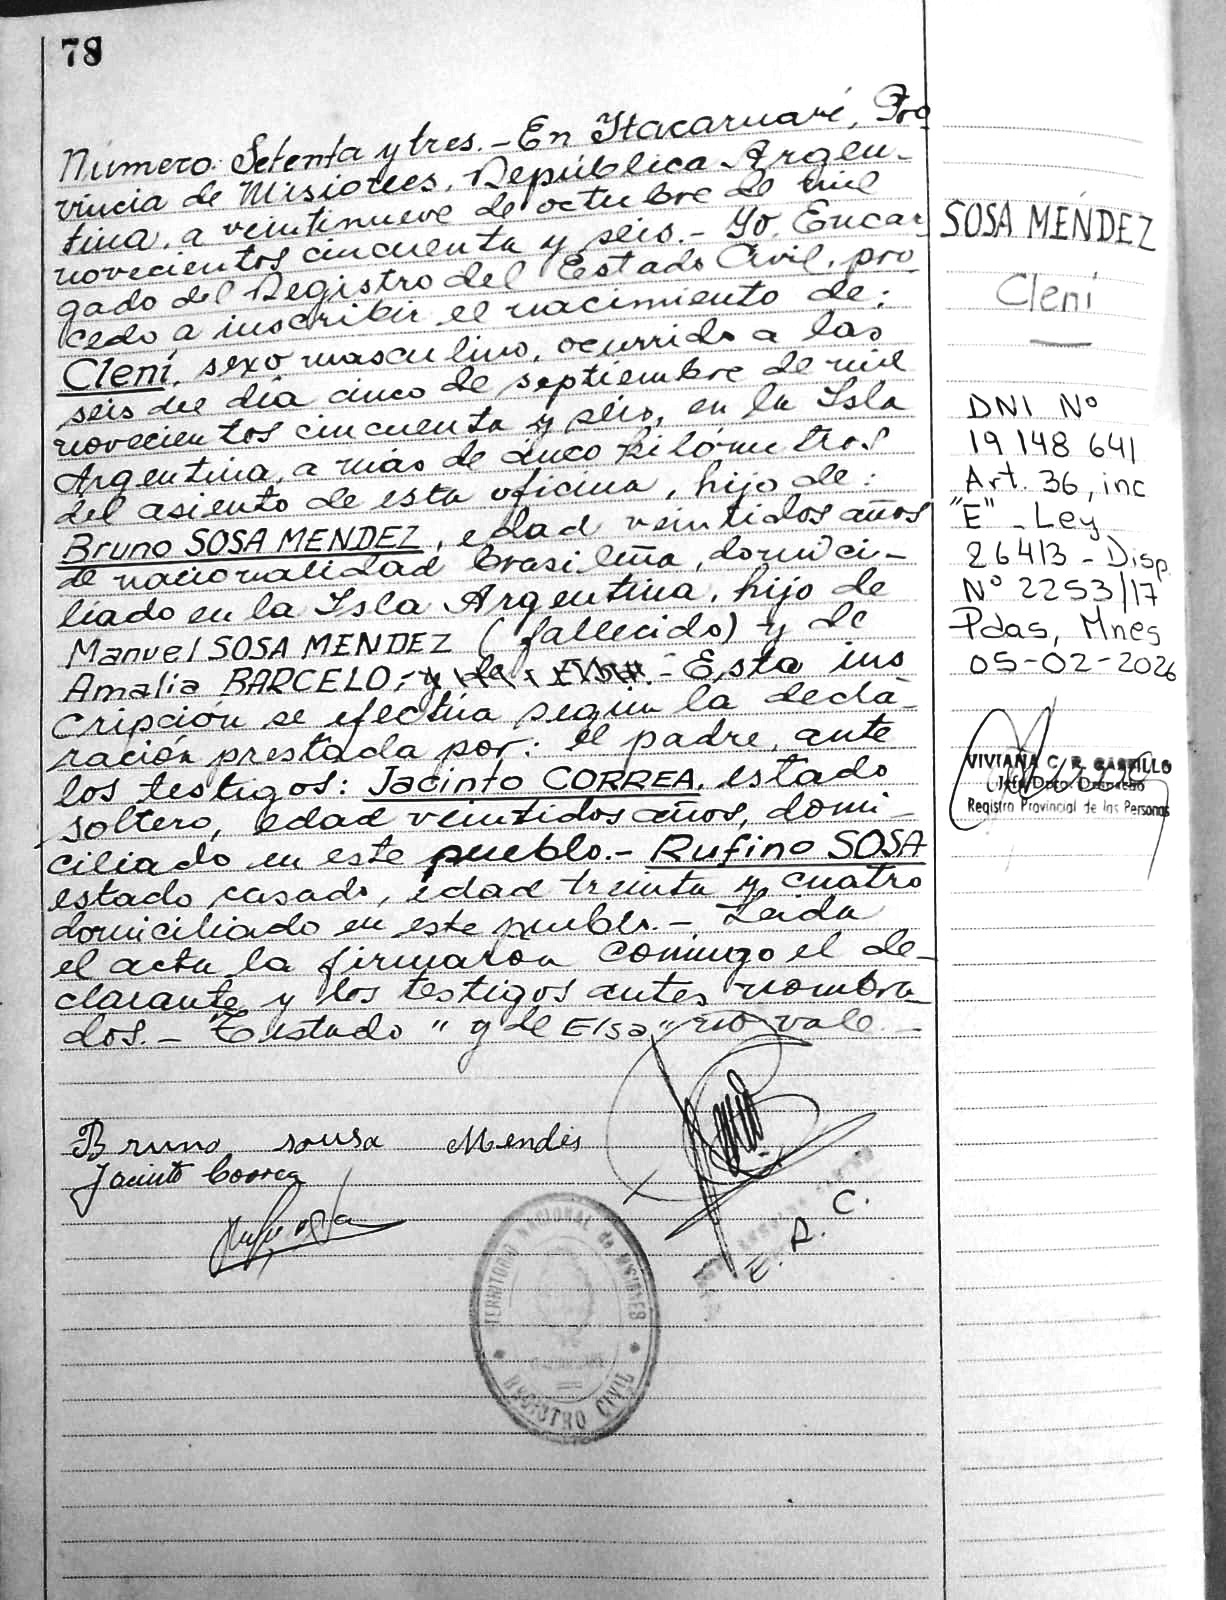 78
Número Setenta y tres.- En Itacaruaré, Pro
vincia de Misiones, República Argen-
tina, a veintinueve de octubre de mil
novecientos cincuenta y seis.- Yo, Encar
gado del Registro del Estado Civil, pro
cedo a inscribir el nacimiento de:
Clení, sexo masculino, ocurrido a las
seis del día cinco de septiembre de mil
novecientos cincuenta y seis, en la Isla
Argentina, a más de cinco kilómetros
del asiento de esta oficina, hijo de:
Bruno SOSA MENDEZ, edad veintidos años
de nacionalidad brasileña, domici-
liado en la Isla Argentina, hijo de
Manuel SOSA MENDEZ (fallecido) y de
Amalia BARCELO,- y de - Esta ins
cripción se efectúa según la decla-
ración prestada por: el padre, ante
los testigos: Jacinto CORREA, estado
soltero, edad veintidos años, domi-
ciliado en este pueblo.- Rufino SOSA
estado casado, edad treinta y cuatro
domiciliado en este pueblo.- Leida
el acta la firmaron conmigo el de-
clarante y los testigos antes nombra-
dos.- Testado "y de Elsa" no vale.-
Bruno sousa Mendes
Jacinto Correa
E. R. C.
TERRITORIO NACIONAL de MISIONES
REGISTRO CIVIL
SOSA MENDEZ
Clení
DNI Nº
19 148 641
Art. 36, inc
"E" - Ley
26413 - Disp.
Nº 2253/17
Pdas, Mnes
05-02-2026
VIVIANA C. R. CASTILLO
Jefa Dpto. Despacho
Registro Provincial de las Personas